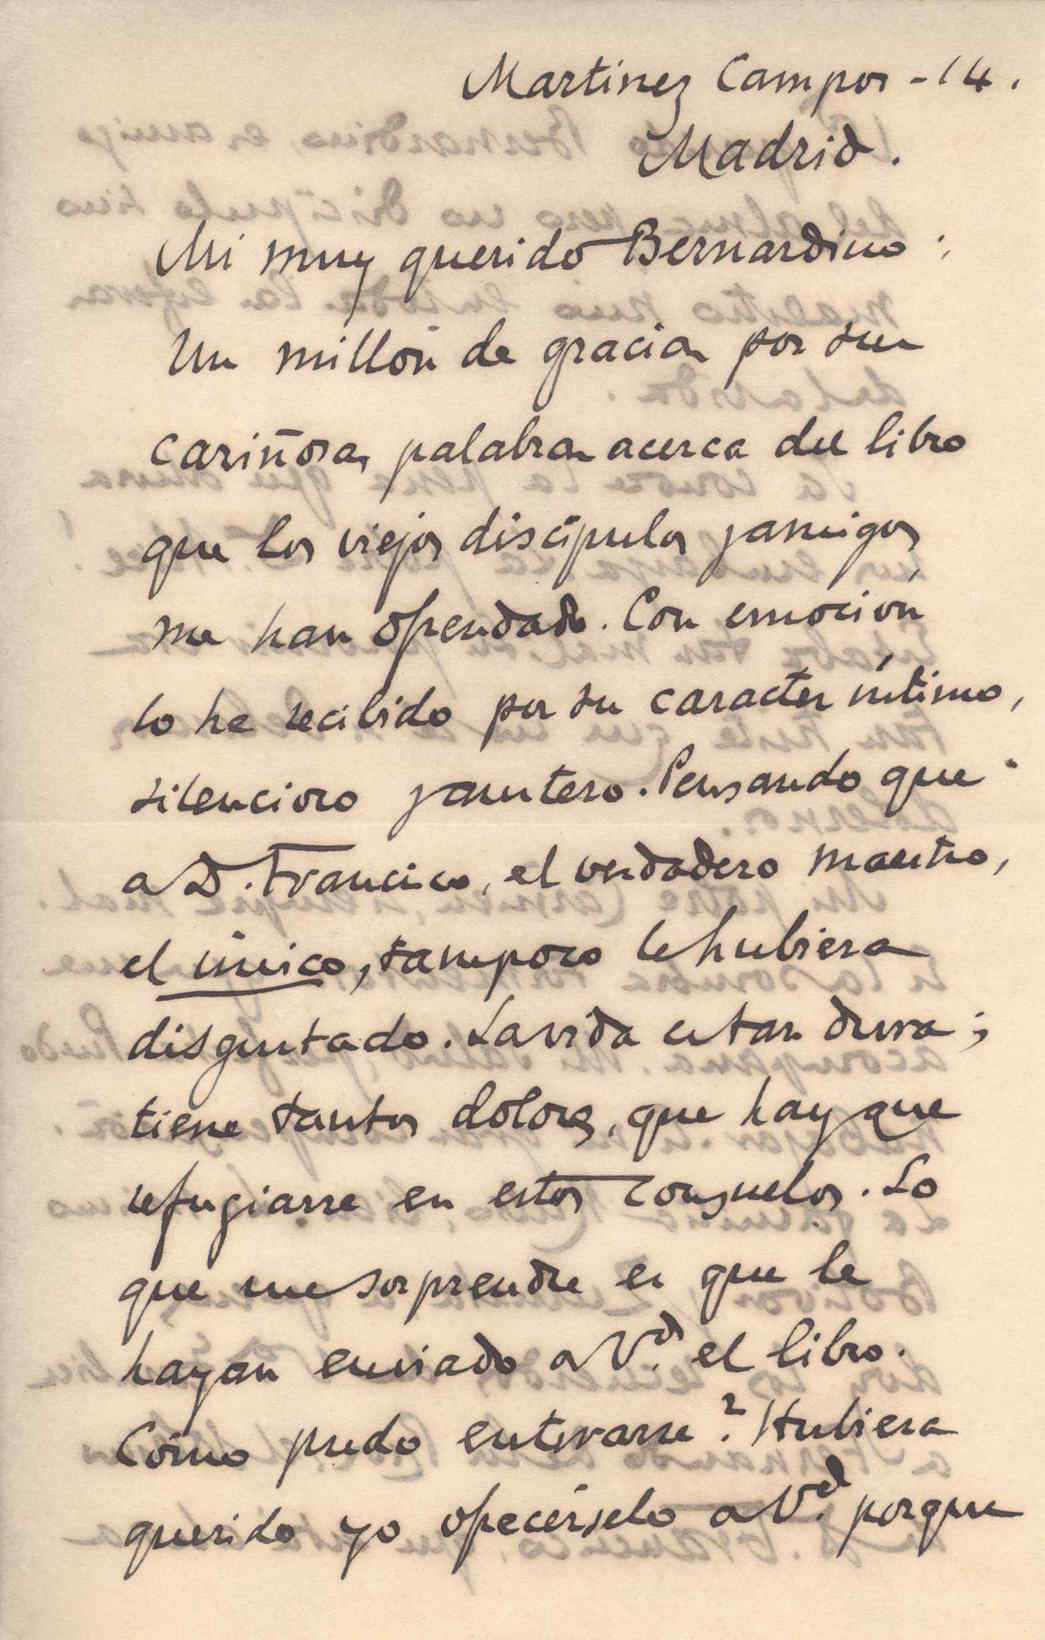 Martinez Campos - 14.
Madrid.
Mi muy querido Bernardino:
Un millón de gracias por sus
cariñosas palabras acerca del libro
que los viejos discípulos y amigos
me han ofrendado. Con emoción
lo he recibido por su caracter íntimo,
silencioso y austero. Pensando que
a D. Francisco, el verdadero maestro,
el único, tampoco le hubiera
disgustado. La vida es tan dura;
tiene tantos dolores, que hay que
refugiarse en estos consuelos. Lo
que me sorprende es que le
hayan enviado a Vd. el libro.
Cómo pudo enterarse? Hubiera
querido yo ofrecérselo a Vd. porque